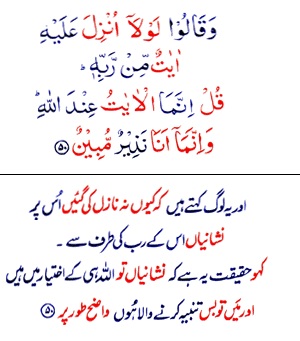 وَقَالُوۡا لَوۡلَاۤ اُنۡزِلَ عَلَيۡهِ
اٰيٰتٌ مِّنۡ رَّبِّهٖ ؕ
قُلۡ اِنَّمَا الۡاٰيٰتُ عِنۡدَ اللّٰهِ ؕ
وَاِنَّمَاۤ اَنَا نَذِيۡرٌ مُّبِيۡنٌ ﴿۵۰﴾
اور یہ لوگ کہتے ہیں کہ کیوں نہ نازل کی گئیں اُس پر
نشانیاں اس کے رب کی طرف سے ۔
کہو حقیقت یہ ہے کہ نشانیاں تو اللہ ہی کے اختیار میں ہیں
اور میں تو بس تنبیہ کرنے والا ہُوں واضح طور پر ﴿۵۰﴾